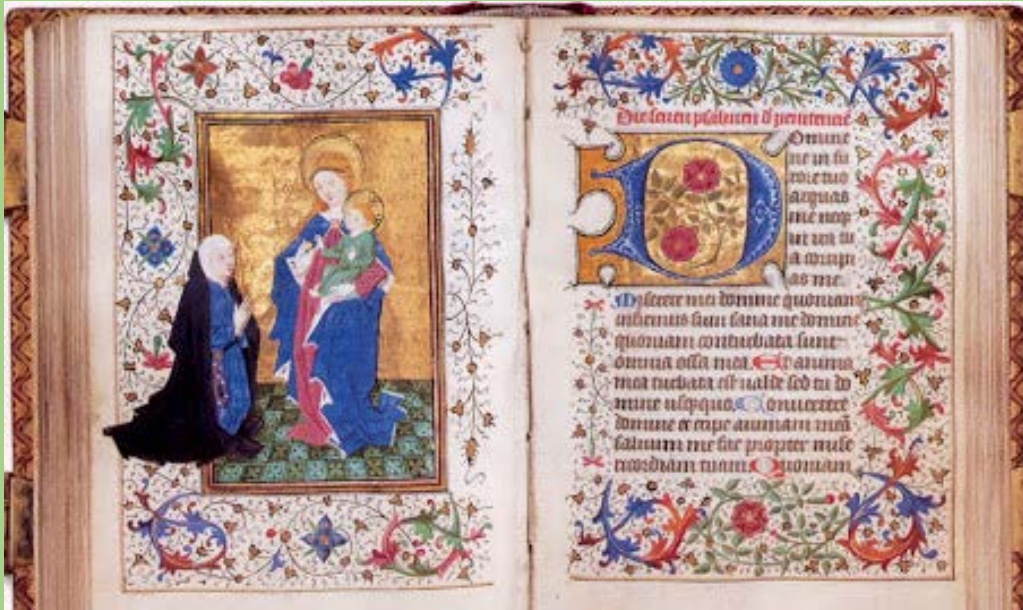 Die seuen psalmen d penitencie
Domine
ne in fu
rore tuo
arguas
me neq
in ira tu
a corripi
as me.
Miserere mei domine quoniam
infirmus sum sana me domine
quoniam conturbata sunt
omnia ossa mea Et anima
mea turbata est ualde sed tu do
mine usquequo Conuertere
domine et eripe animam meã
saluum me fac propter mise
ricordiam tuam Quoniam